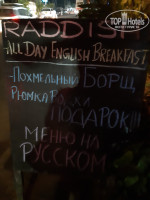 RADDISH
ALL DAY ENGLISH BREAKFAST
-ПОХМЕЛЬНЫЙ БОРЩ
РЮМКА В
ПОДАРОК!
МЕНЮ НА
РУССКОМ
TOP HOTELS